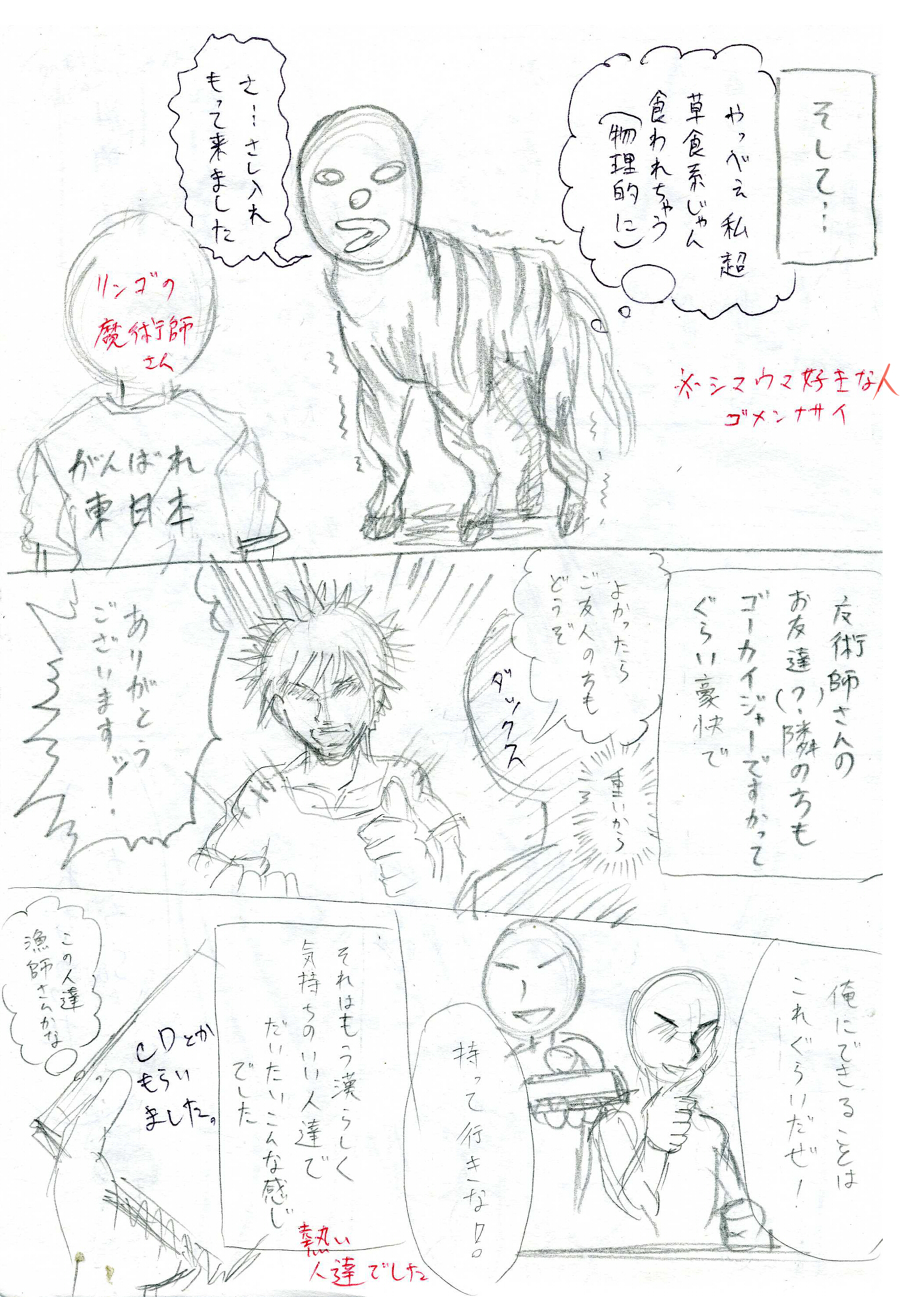 そして…
やっべぇ私超
草食系じゃん
食われちゃう
(物理的に)
さ…さし入れ
もって来ました
リンゴの
魔術師
さん
がんばれ
東日本
※シマウマ好きな人
ゴメンナサイ
术師さんの
お友達(?)隣の方も
ゴーカイジャーですかって
ぐらい豪快で
よかったら
ご友人の方も
どうぞ
重いから
ダックス
ありがとう
ございますッ!
俺にできることは
これぐらいだぜ!
持って行きな!
それはもう漢らしく
気持ちのいい人達で
だいたいこんな感じ
でした
熱い
人達でした
CDとか
もらい
ました。
この人達
漁師さんかな